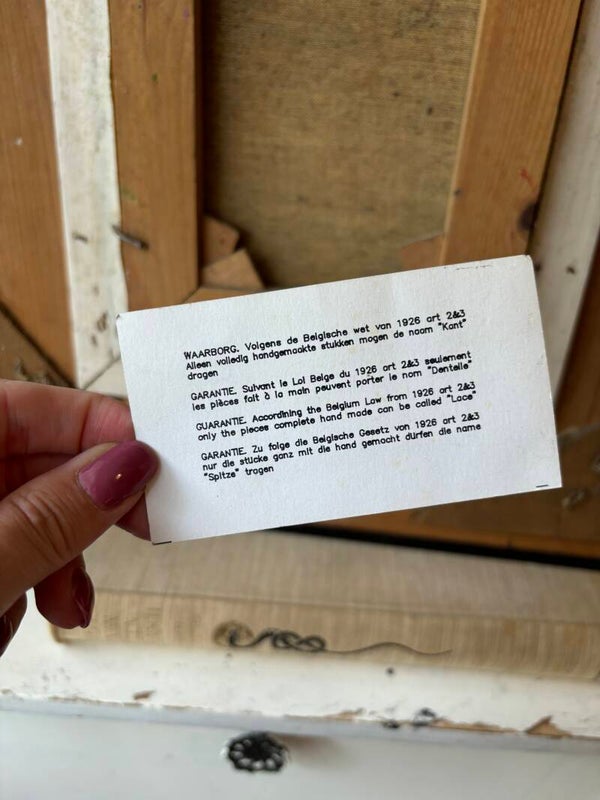 WAARBORG. Volgens de Belgische wet van 1926 art 2&3
Alleen volledig handgemaakte stukken mogen de naam "Kant"
dragen
GARANTIE. Suivant le Loi Belge du 1926 art 2&3 seulement
les pièces fait à la main peuvent porter le nom "Dentelle"
GUARANTIE. Accordining the Belgium Law from 1926 art 2&3
only the pieces complete hand made can be called "Lace"
GARANTIE. Zu folge die Belgische Gesetz von 1926 art 2&3
nur die stücke ganz mit die hand gemacht dürfen die name
"Spitze" tragen